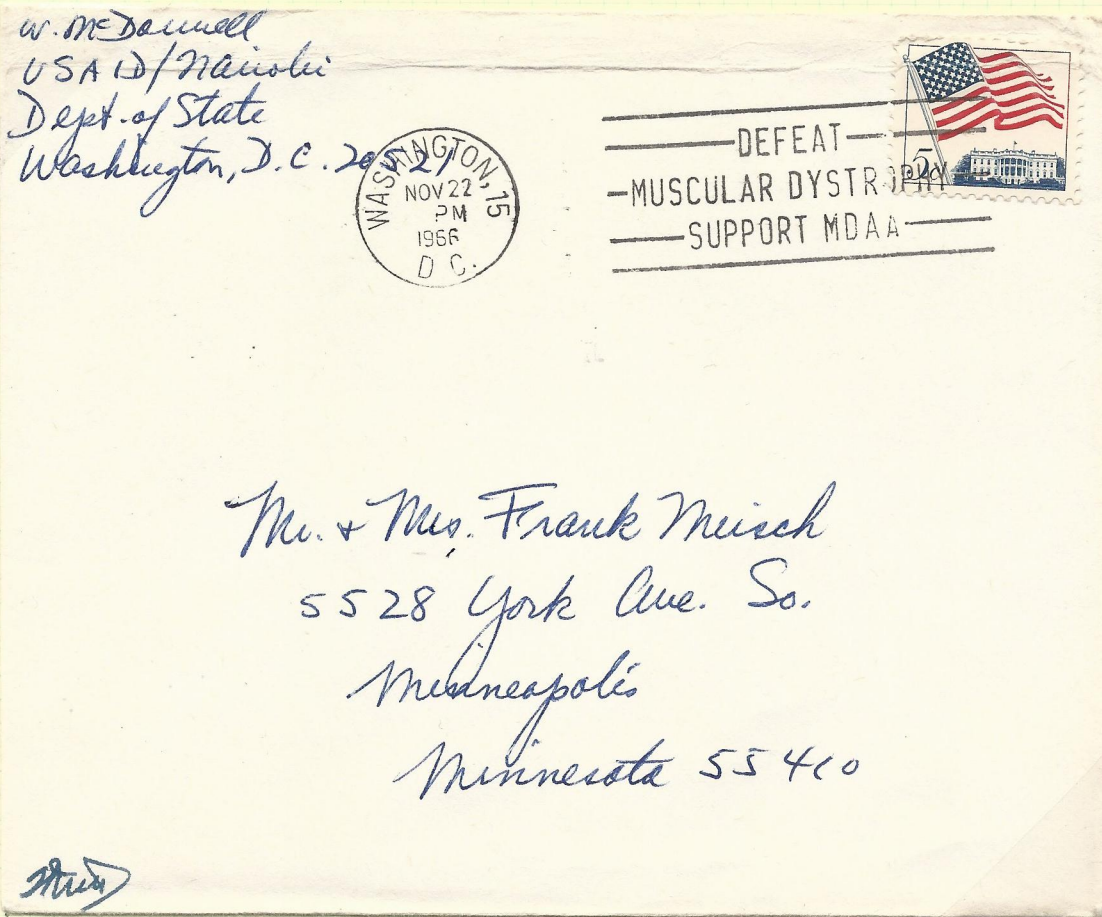 W. McDonnell
USAID/Nairobi
Dept. of State
Washington, D.C. 20521
WASHINGTON, 15
NOV 22
PM
1966
D C.
DEFEAT
MUSCULAR DYSTROPHY
SUPPORT MDAA
5¢
Mr. & Mrs. Frank Meisch
5528 York Ave. So.
Minneapolis
Minnesota 55410